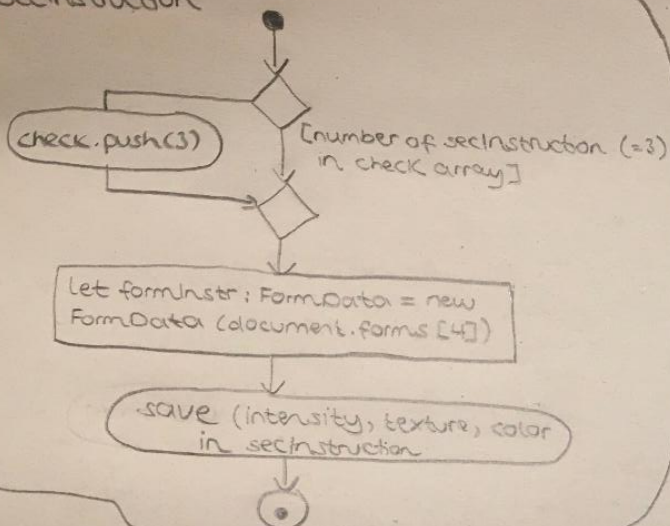 secInstruction
check.push(3)
[number of secInstruction (=3)
in check array]
let formInstr: FormData = new
FormData (document.forms [4])
save (intensity, texture, color
in secInstruction